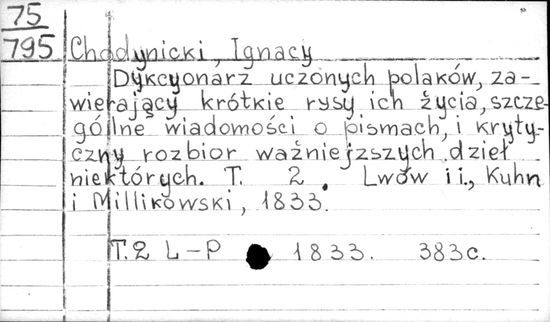 75
795
Chodynicki, Ignacy
Dykcyonarz uczonych polaków, za-
wierający krótkie rysy ich życia, szcze-
gólne wiadomości o pismach, i kryty-
czny rozbior ważniejszych dzieł
niektórych. T. 2. Lwów i i., Kuhn
i Millikowski, 1833.
T.2 L-P 1833. 383c.